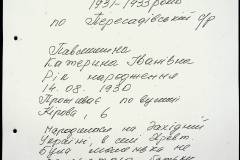 1931-1933 роки
по Пересадівській с/р
Павлишина
Катерина Іванівна
Рік народження
14.08. 1930
Проживає по вулиці
Кірова, 6
Народилася на Західній
Україні, в сел.
Була маленька не
батьки